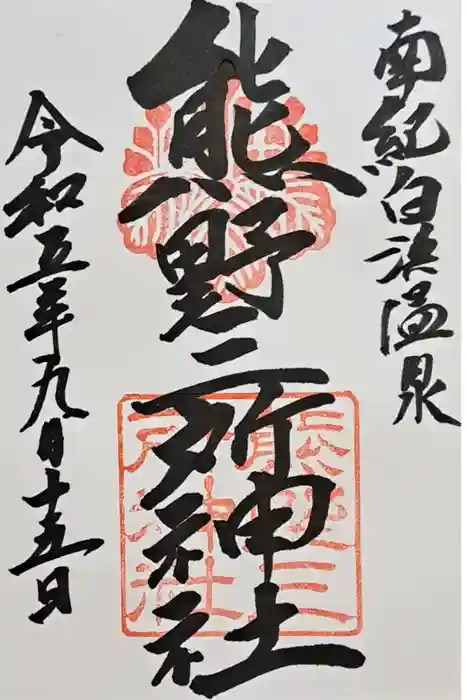 南紀白浜温泉
熊野三所神社
令和五年九月十五日
熊野三
所神社